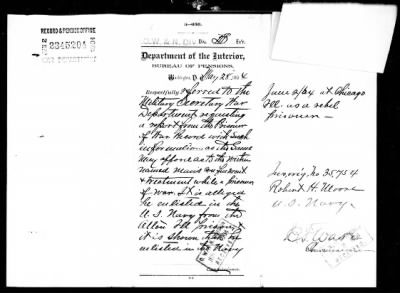 3-480.
RECORD & PENSION OFFICE
2345204
WAR DEPARTMENT
O. W. & N. DIV.
Ex'r.
Department of the Interior,
BUREAU OF PENSIONS,
Washington, D. May 28, 1904
Respectfully referred to the
Military Secretary War
Department requesting
a report from the Prisoner
of War Record with such
information as the same
may afford as to the within
named
& treatment while a prisoner
of war. It is alleged
he enlisted in the
U. S. Navy from the
Alton Ill prison,
it is shown that he
enlisted in the Navy
June 3/64 at Chicago
Ill. as a rebel
prisoner
Inv. Orig. No 35754
Robert H. Moore
U. S. Navy.
Commissioner.